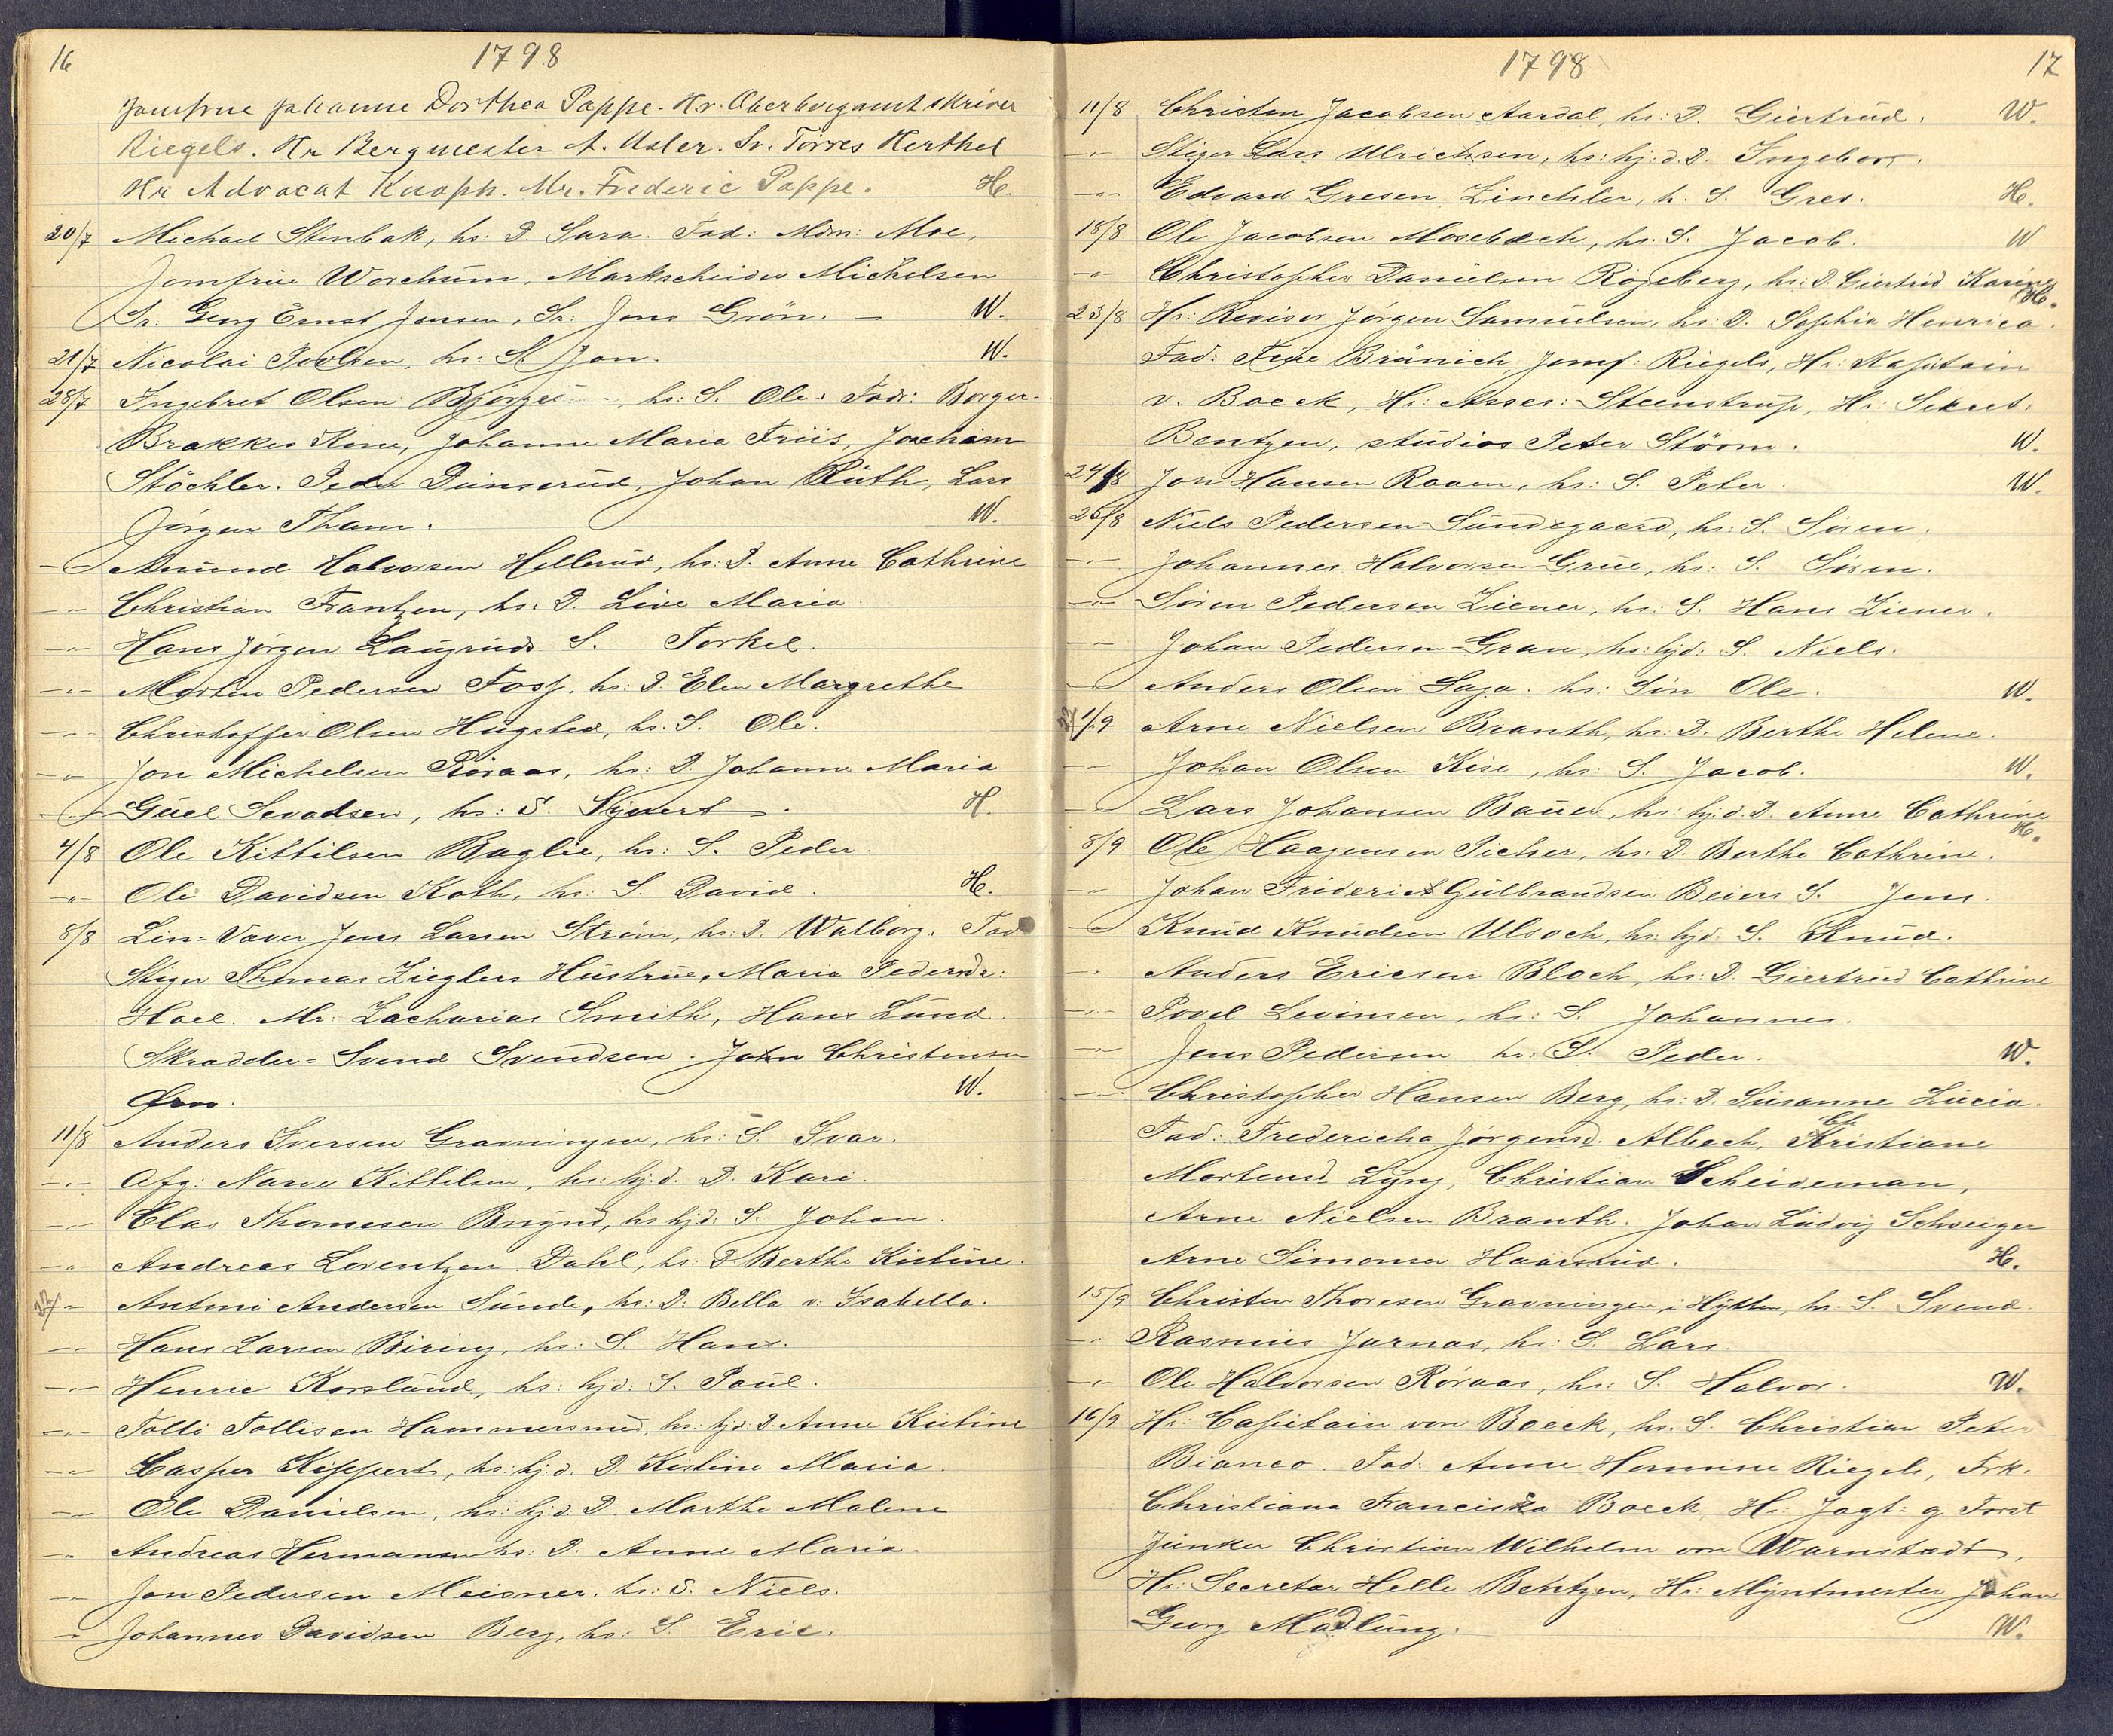 16
1798
Jomfrue Johanne Dorthea Poppe. Hr. Oberbergamtskriver
Riegels. Hr Bergmester A. Usler. Sr. Torres Herthel
Hr Advocat Knoph. Mr. Frederic Poppe. H.
20/7 Michael Stenbak, hs: D. Sara. Fad: Mdm: Moe,
Jomfrue Worchum, Markscheider Michelsen
Sr: Georg Ernst Jensen, Sr: Jens Grön. - W.
21/7 Nicolai Poulsen, hs: S. Jon. W.
28/7 Ingebret Olsen, hs: S. Ole. Fadr: Borger
Brakkes Kone, Johanne Maria Friis, Joachim
Stöchler. Peder Dunserud, Johan Rüth, Lars
Jörgen Tham. W.
-"- Amund Halvorsen Hellerud, hs: D. Anne Cathrine
-"- Christian Frantzen, hs: D. Live Maria.
-"- Hans Jörgen Laugruds S. Torkel.
-"- Morten Pedersen Foss, hs: D. Elen Margrethe
-"- Christoffer Olsen Hugsted, hs: S. Ole.
-"- Jon Michelsen Röraas, hs: D. Johanne Maria
-"- Guel Sevadsen, hs: S. Syvert. H.
4/8 Ole Kittilsen Baglie, hs: S. Peder.
-"- Ole Davidsen Koth, hs: S. David. H.
8/8 Lin=Væver Jens Larsen Ström, hs: D. Walborg. Fad
Stiger Thomas Zieglers Hustrue, Maria Pedersdr:
Hoel. Mr. Zacharias Smith, Hans Lund.
Skrædder=Svend Svendsen. John Christensen
W.
11/8 Anders Iversen Gravningen, hs: S. Ivar.
-"- Afg: Narve Kittilsen, hs: hj.d. D. Kari.
-"- Clas Thomesen, hs hjd: S. Johan.
-"- Andreas Lorentzen Dahl, hs: D. Berthe Kistine.
-"- Antoni Andersen Sunde, hs: D: Bella v: Isabella.
-"- Hans Larsen Biring, hs: S. Hans.
-"- Henric Korslund, hs: hjd: S. Paul.
-"- Tolli Tollisen Hammersmed, hs: hjd D. Anne Kistine
-"- Casper Kippert, hs: hj.d. D. Kistine Maria.
-"- Ole Danielsen, hs: hj.d. D. Marthe Malene
-"- Andreas Hermansen hs: D. Anne Maria.
-"- Jon Pedersen Meisner, hs: S. Niels.
-"- Johannes Davidsen Berg, hs: S. Eric.
1798
17
11/8 Christen Jacobsen Aardal, hs: D. Giertrud. W.
-"- Stiger Lars Ulrichsen, hs: hj: d. D. Ingeborg.
-"- Edvard Gresen Zinchler, h. S. Gres. H.
18/8 Ole Jacobsen Mosebech, hs: S. Jacob. W
-"- Christopher Danielsen Rogeberg, hs: D. Giertrud Karine
H.
23/8 Hr: Revisor Jörgen Samuelsen, hs: D. Sophia Henrica.
Fad: Brünich, Jomf: Riegels, Hr: Kapitain
v. Boeck, Hr: Asses: Steenstrup, Hr: Sekret.
Bentzen, studios Peter Störm. W.
24/8 Jon Hansen Raaen, hs: S. Peter. W.
25/8 Niels Pedersen Sundsgaard, hs: S. Sören.
-"- Johannes Halvorsen Grue, hs: S. Sören.
-"- Sören Pedersen Ziener, hs: S. Hans Ziener.
-"- Johan Pedersen Gran, hs: hjd: S. Niels.
-"- Anders Olsen Saga. hs: Sön Ole. W.
1/9 Arne Nielsen Branth, hs: D. Berthe Helene.
-"- Johan Olsen Kise, hs: S. Jacob. W.
-"- Lars Johansen Bauer, hs: hj.d. D. Anne Cathrine
H.
8/9 Ole Haagensen Picher, hs: D. Berthe Cathrine.
-"- Johan Frideric Gulbrandsen Beiers S. Jens.
-"- Knud Knudsen Ulsoch, hs: hjd: S. Knud.
-"- Anders Ericsen Bloch, hs: D. Giertrud Cathrine
-"- Povel Levinsen, hs: S. Johannes.
-"- Jens Pedersen hs: S. Peder. W.
-"- Christopher Hansen Berg, hs: D. Susanne Lucia.
Fad: Fredericha Jörgensd. Albech, Christiane
Mortensd Lyng, Christian Scheideman,
Arne Nielsen Branth. Johan Ludvig Schweiger
Arne Simonsen Haarstud. H.
15/9 Christen Thoresen Gravningen i Hytten, hs: S. Svend.
-"- Rasmus Jarnas, hs: S. Lars.
-"- Ole Halvorsen Röraas, hs: S. Halvor. W.
16/9 Hr: Capitain von Boeck, hs. S. Christian Peter
Bianco. Fad: Anne Hermine Riegels, Frk.
Christiana Franciska Boeck, Hr: Jagt= g Forst
Junker Christian Wilhelm von Warnstædt,
Hr: Secretær Helle Bentzen, Hr: Myntmester Johan
Georg Madlung. W.